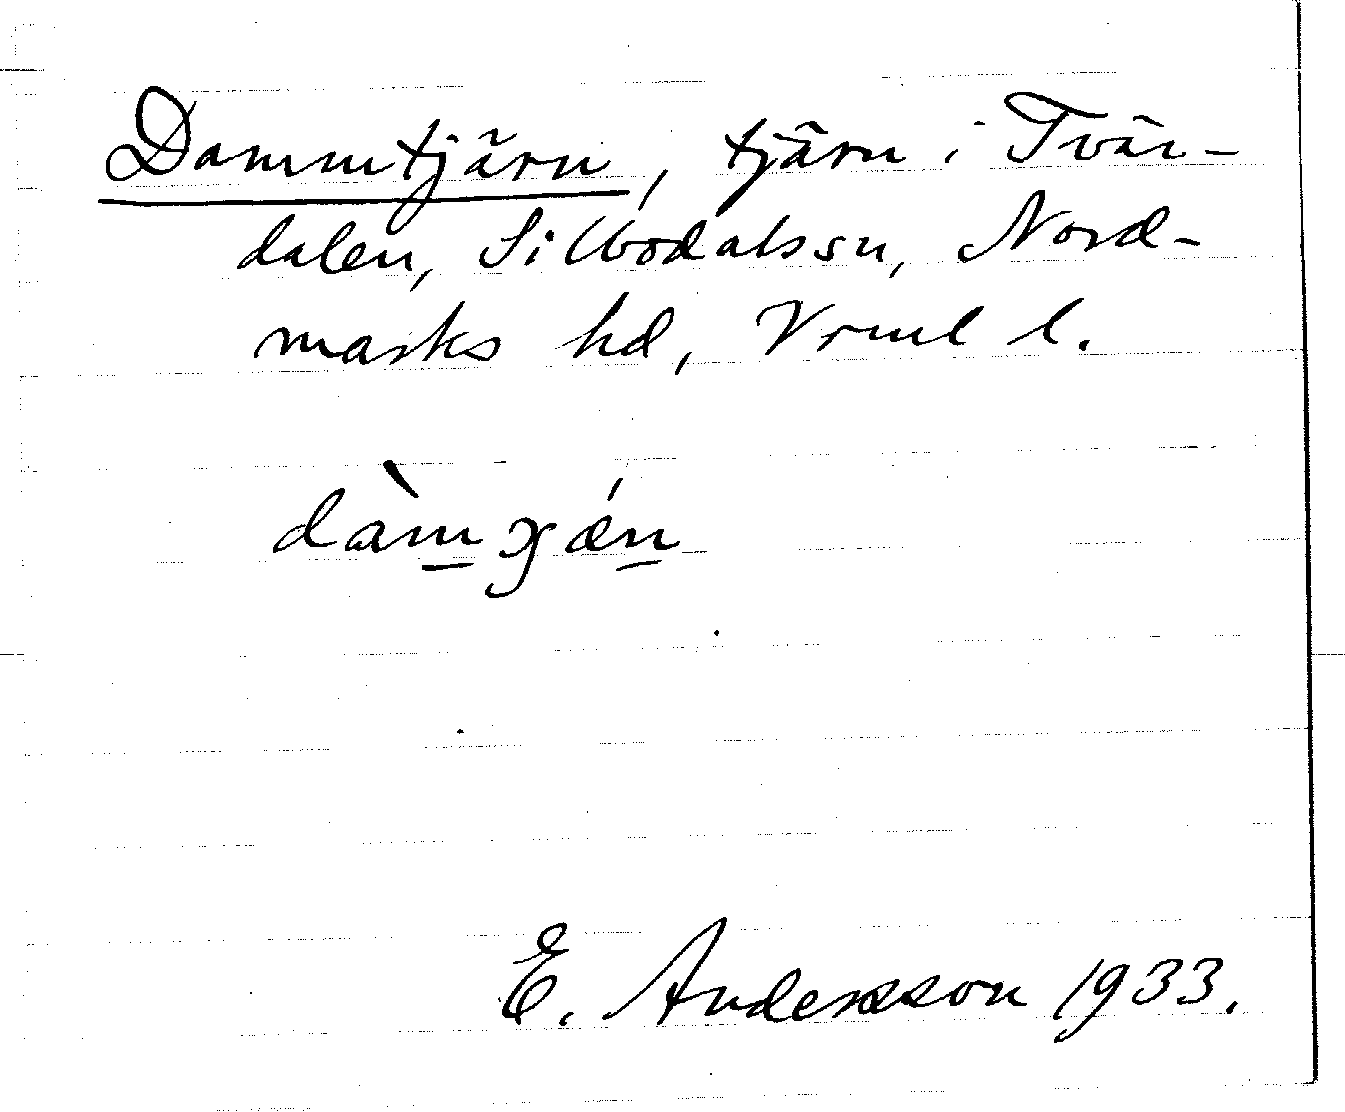 Dammtjärn, tjärn i Tvär-
dalen, Silbodals sn, Nord-
marks hd, Vrml l.
E. Andersson 1933.